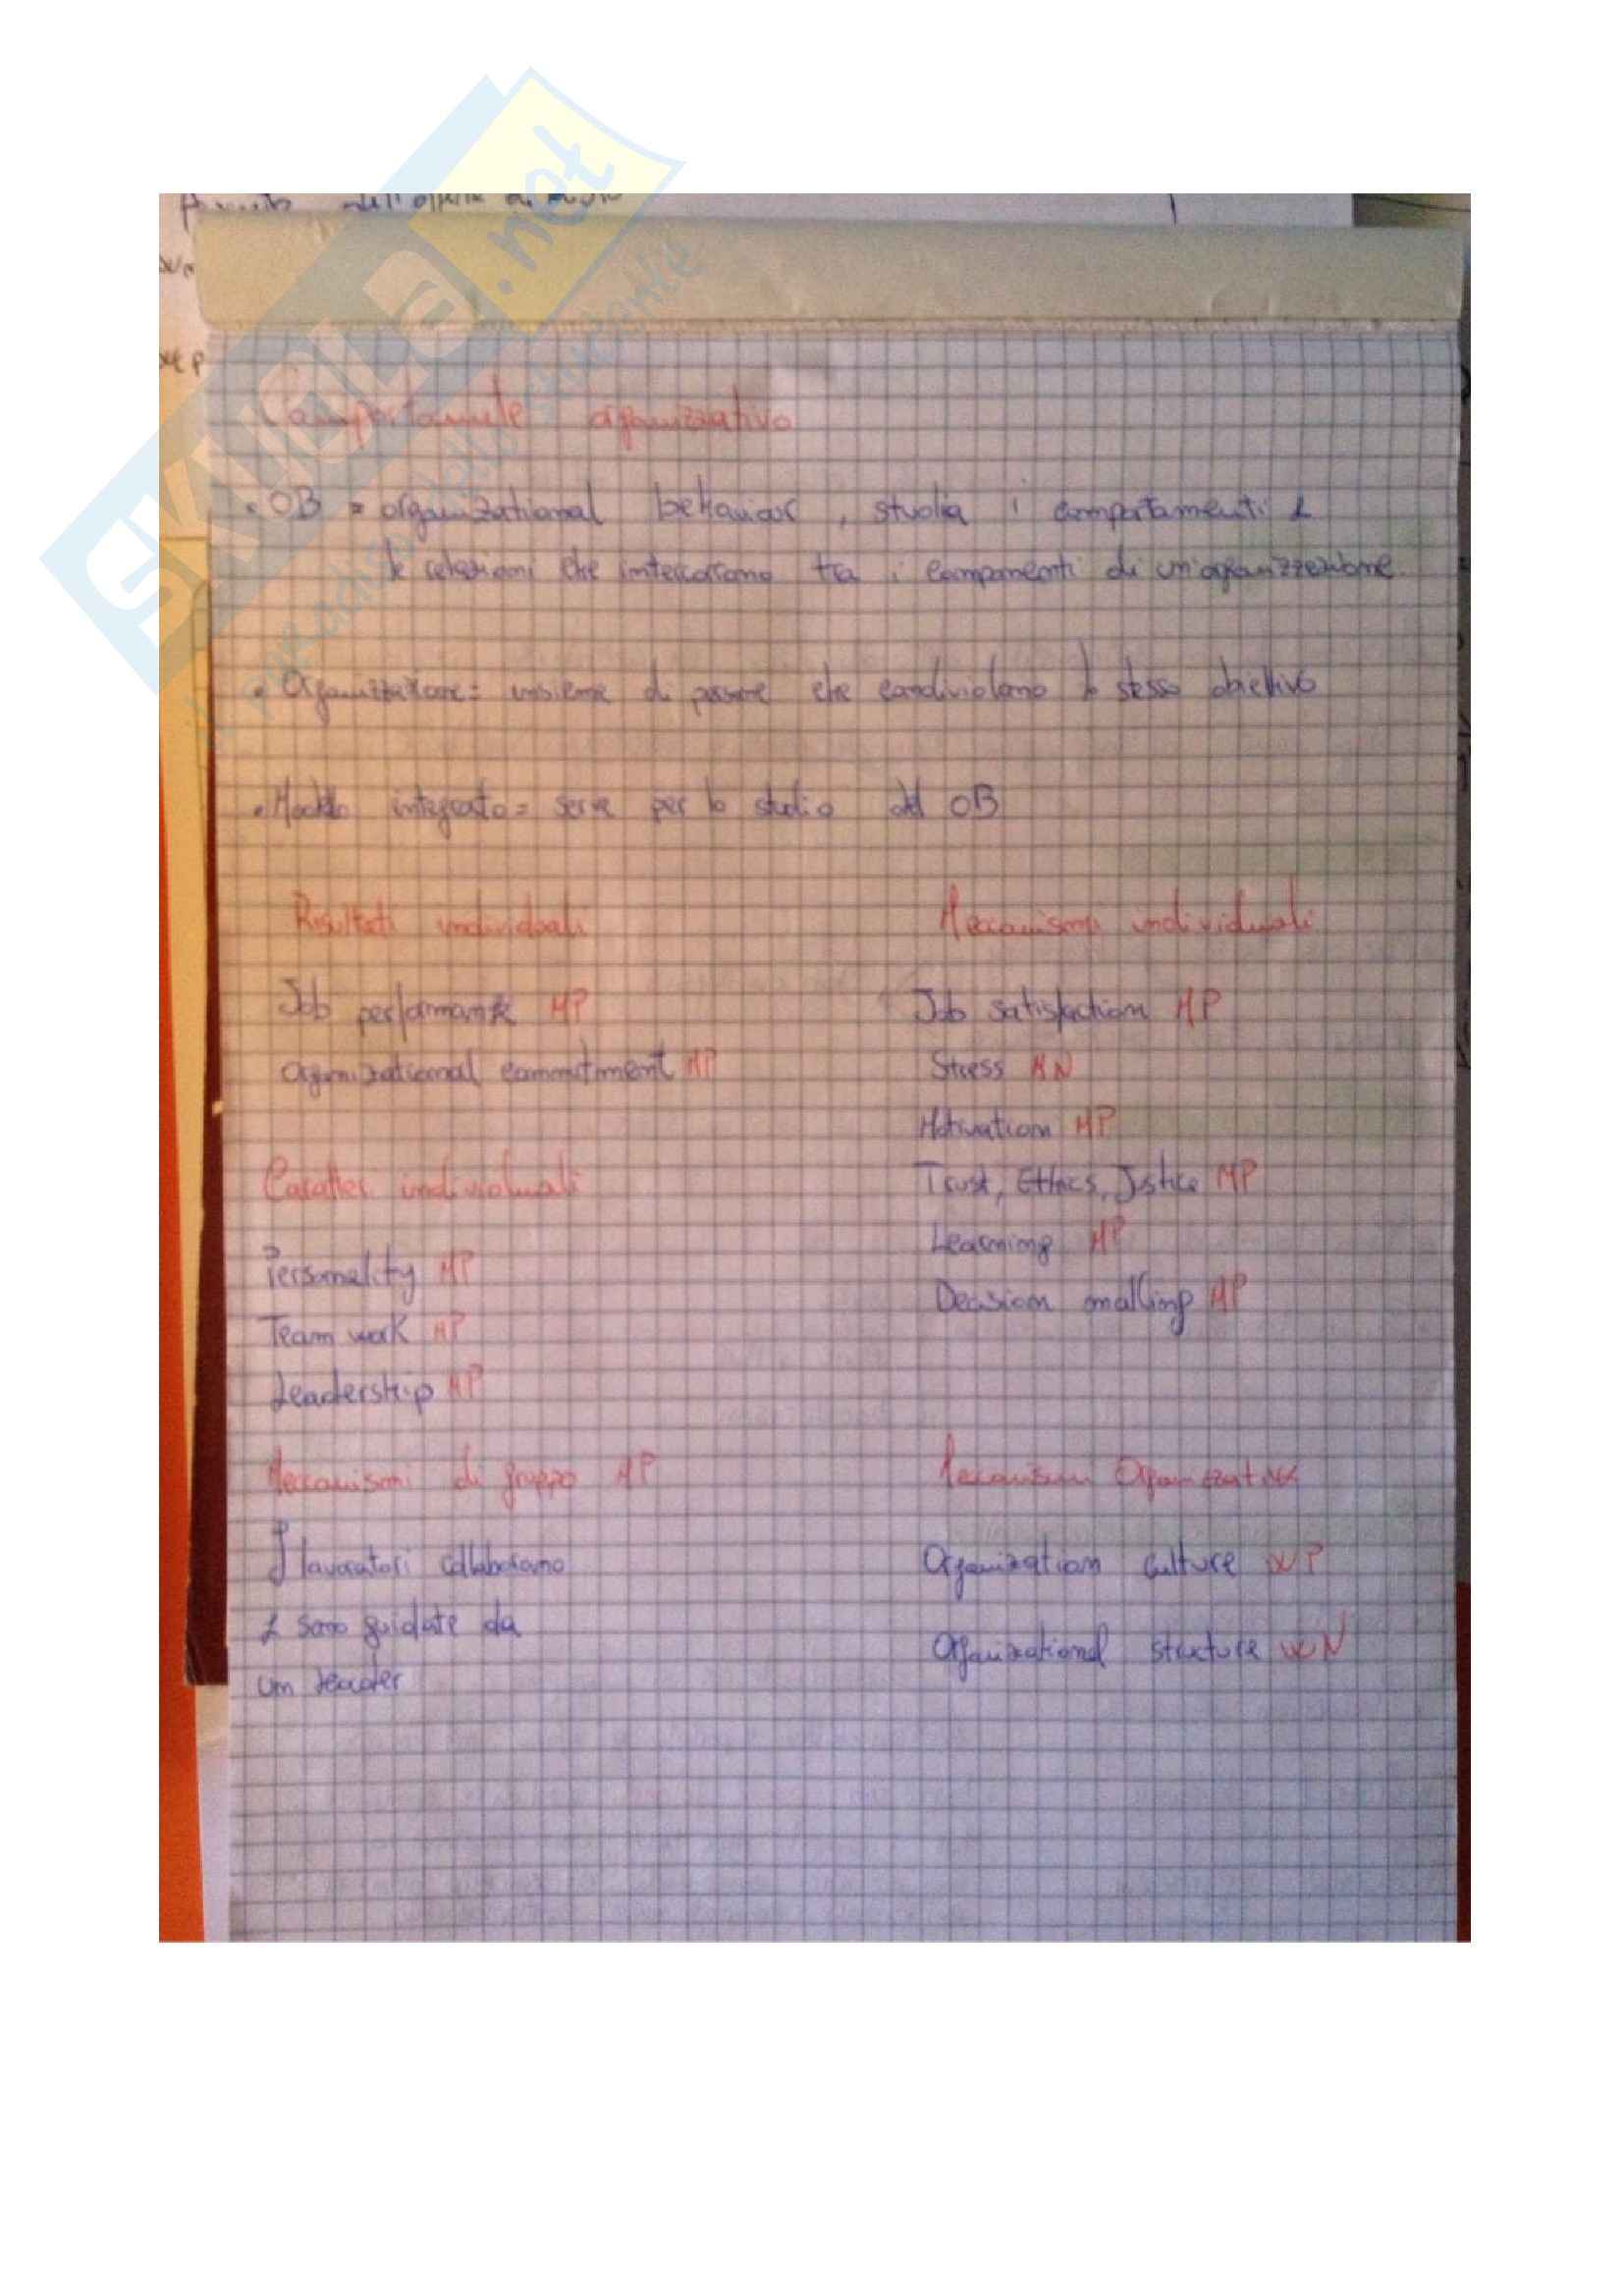 SKUOLA.net
il paradiso dello studente
Comportamento organizzativo
• OB = organizational behaviour, studia i comportamenti e
le relazioni che intercorrono tra i componenti di un'organizzazione.
• Organizzazione = insieme di persone che condividono lo stesso obiettivo
• Modello integrato = serve per lo studio del OB
Risultati individuali
Job performance MP
Organizational commitment MP
Caratteri individuali
Personality MP
Team work MP
Leadership MP
Meccanismi di gruppo MP
I lavoratori collaborano
e sono guidate da
un leader
Meccanismi individuali
Job satisfaction MP
Stress MN
Motivation MP
Trust, Ethics, Justice MP
Learning MP
Decision making MP
Meccanismi Organizzativi
Organization culture P
Organizational structure N